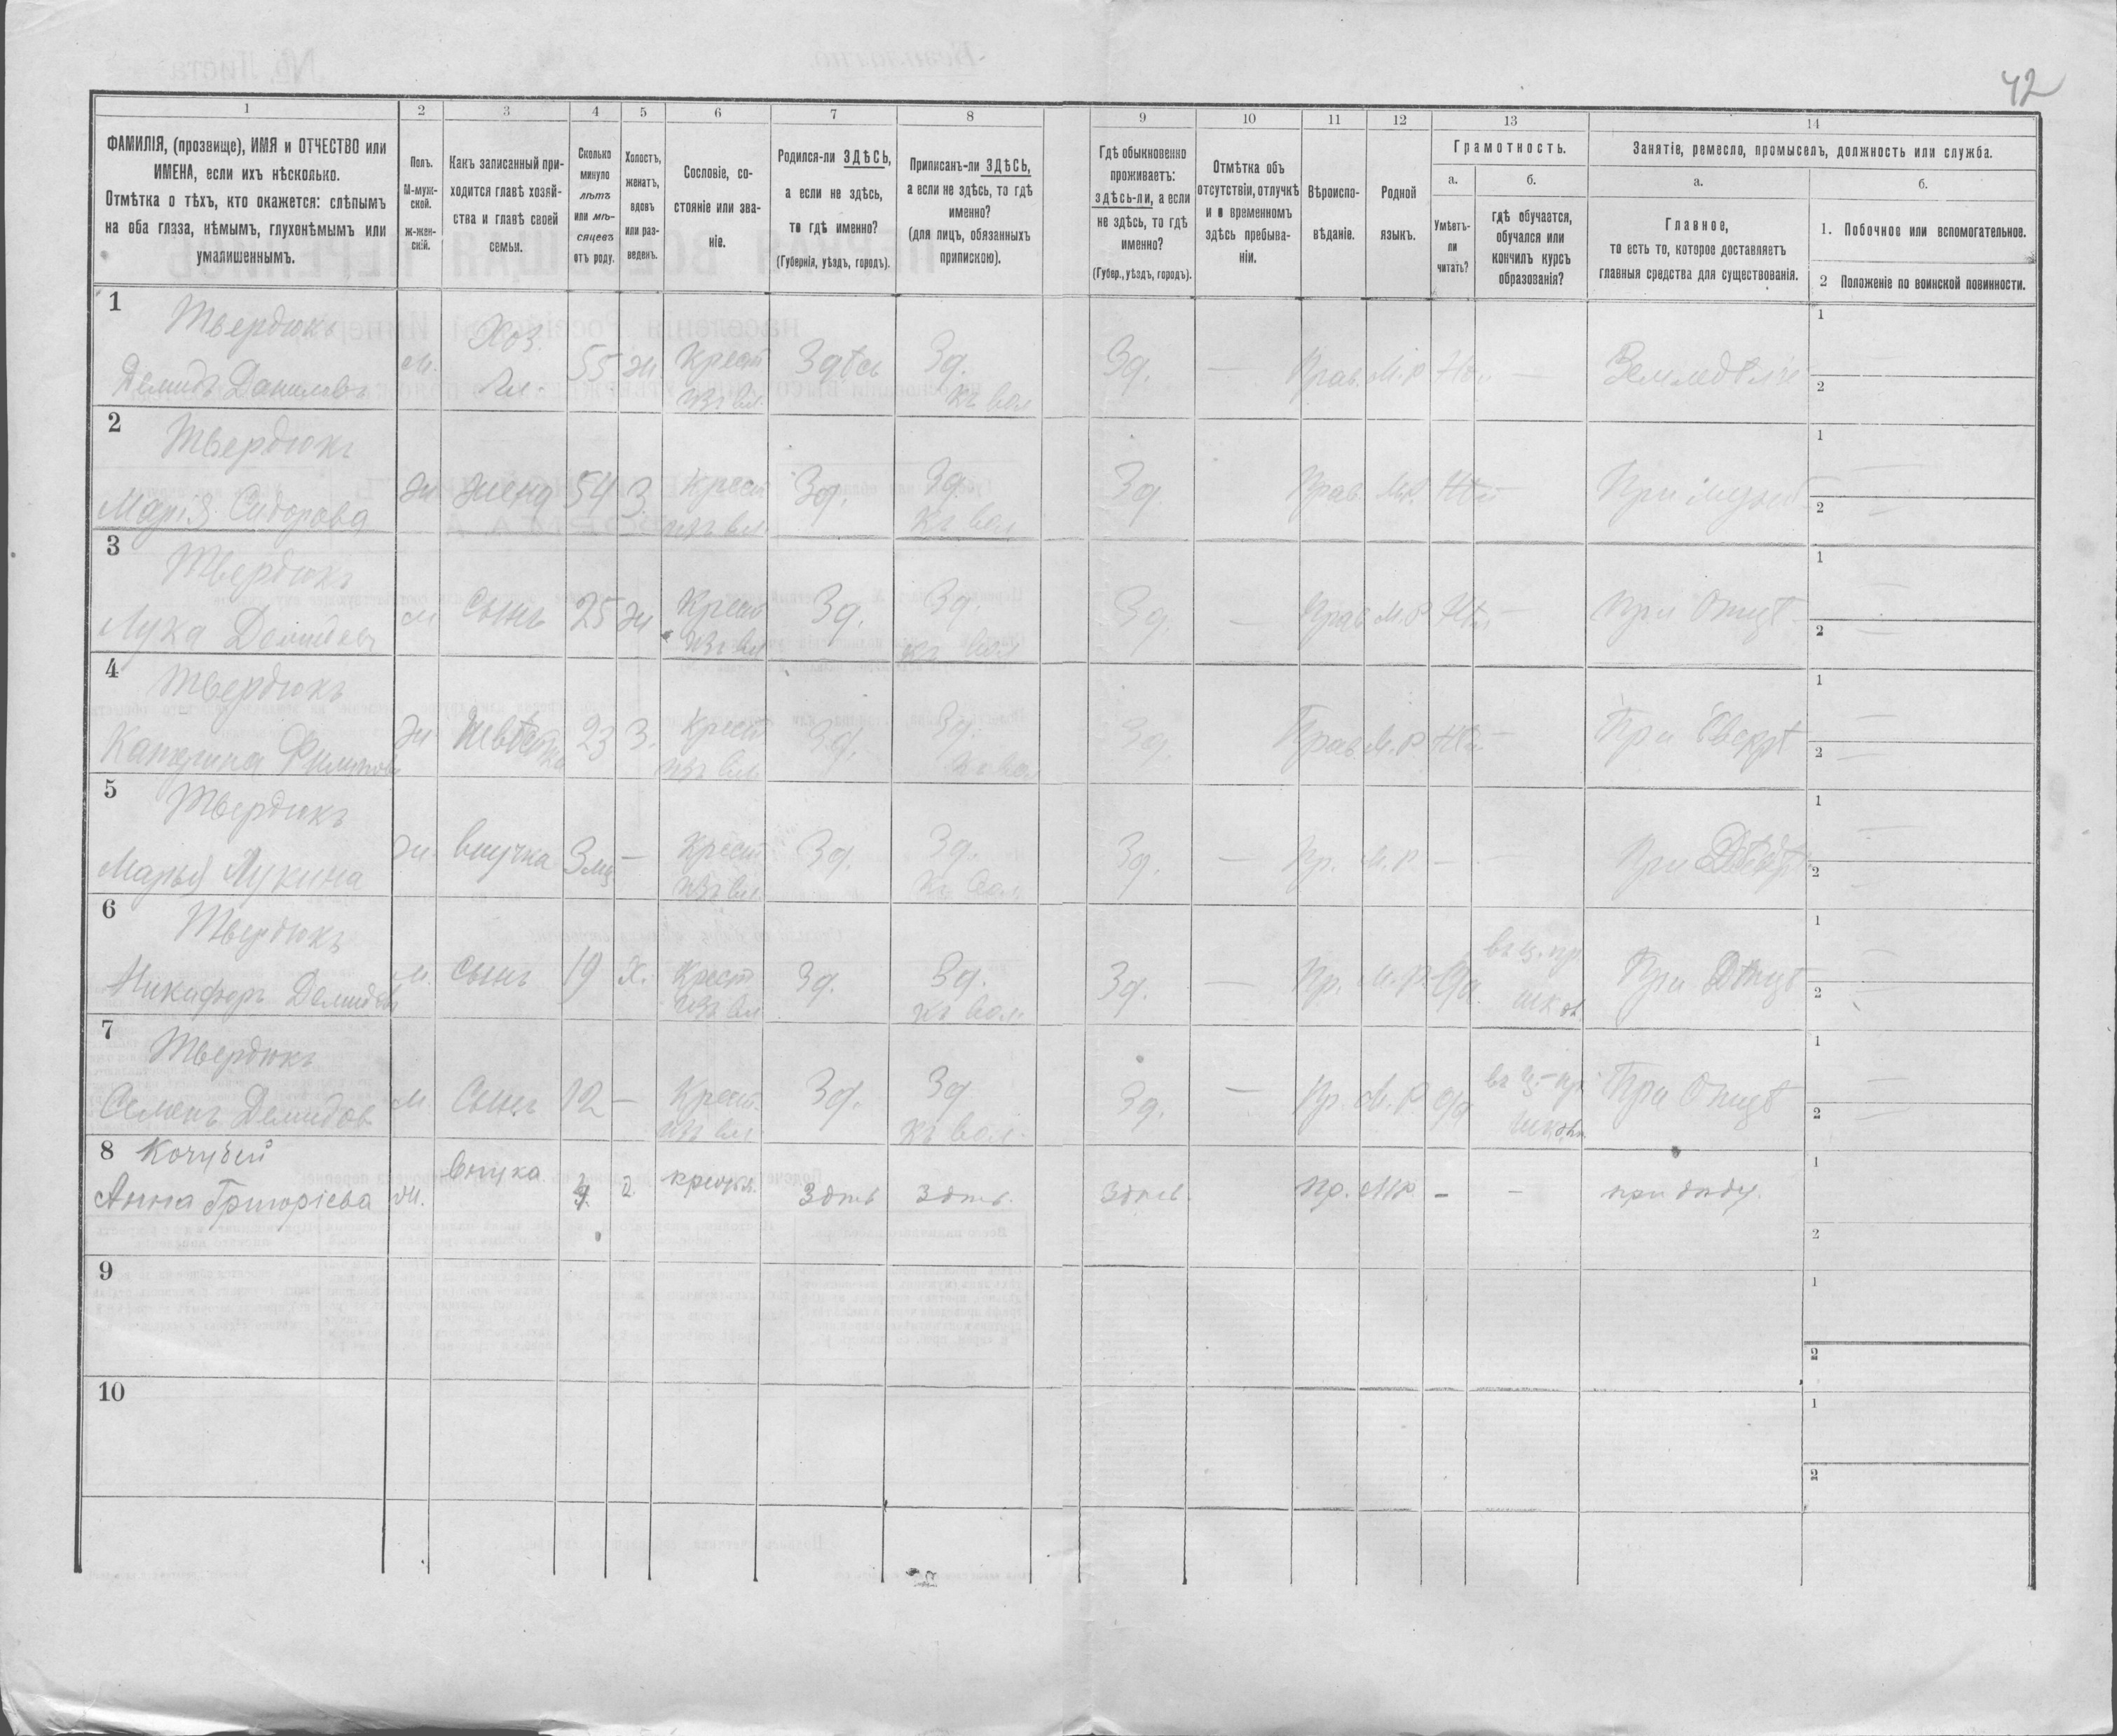 42
1 2 3 4 5 6 7 8 9 10 11 12 13 14
ФАМИЛІЯ, (прозвище), ИМЯ и ОТЧЕСТВО или
ИМЕНА, если ихъ нѣсколько.
Отмѣтка о тѣхъ, кто окажется: слѣпымъ
на оба глаза, нѣмымъ, глухонѣмымъ или
умалишеннымъ.
Полъ.
М-муж-
ской.
ж-жен-
скій.
Какъ записанный при-
ходится главѣ хозяй-
ства и главѣ своей
семьи.
Сколько
минуло
лѣтъ
или мѣ-
сяцевъ
отъ роду.
Холостъ,
женатъ,
вдовъ
или раз-
веденъ.
Сословіе, со-
стояніе или зва-
ніе.
Родился-ли ЗДѢСЬ,
а если не здѣсь,
то гдѣ именно?
(Губернія, уѣздъ, городъ).
Приписанъ-ли ЗДѢСЬ,
а если не здѣсь, то гдѣ
именно?
(для лицъ, обязанныхъ
припискою).
Гдѣ обыкновенно
проживаетъ:
здѣсь-ли, а если
не здѣсь, то гдѣ
именно?
(Губер., уѣздъ, городъ).
Отмѣтка объ
отсутствіи, отлучкѣ
и о временномъ
здѣсь пребыва-
ніи.
Вѣроиспо-
вѣданіе.
Родной
языкъ.
Грамотность.
а.
Умѣетъ-
ли
читать?
б.
гдѣ обучается,
обучался или
кончилъ курсъ
образованія?
Занятіе, ремесло, промыселъ, должность или служба.
а.
Главное,
то есть то, которое доставляетъ
главныя средства для существованія.
б.
1. Побочное или вспомогательное.
2 Положеніе по воинской повинности.
1 Твердюкъ Хоз. 1
Демидъ Даниловъ м. Гл. 55 ж Крест Здѣсь Зд. Зд. — Прав. М.Р. Нѣт — Земледѣліе
изъ вл къ вол 2
2 Твердюкъ 1
Марія Сидорова ж. жена 54 З. Крест Зд. Зд. Зд. Прав. М.Р. Нѣт При мужѣ
изъ вл къ вол 2 —
3 Твердюкъ 1 —
Лука Демидовъ м Сынъ 25 ж Крест Зд. Зд. Зд. — Прав М.Р Нѣт — При Отцѣ
изъ вл къ вол 2 —
4 Твердюкъ 1 —
ж. невѣстка 23 З. Крест Зд. Зд. Зд. Прав М.Р Нѣт — При Свекрѣ
изъ вл. къ вол 2 —
5 Твердюкъ 1 —
Марья Лукина ж. внучка 3 мц — Крест Зд. Зд. Зд. Пр. М.Р — — При
изъ вл. къ вол. 2 —
6 Твердюкъ въ ц. пр 1 —
Никифоръ Демидовъ м. Сынъ 19 х. Крест Зд. Зд. Зд. — Пр. М.Р. Да При Отцѣ
изъ вл къ вол. шк 2 —
7 Твердюкъ въ ц. пр 1 —
Семенъ Демидов м. Сынъ 12 — Крест. Зд. Зд Зд. — Пр. М.Р. Да При Отцѣ
изъ вл. къ вол. шк 2 —
8 Кочубей внучка 1
Анна Григоріева ж. пр. МР. – – при дѣду.
2
9 1
2
10 1
2